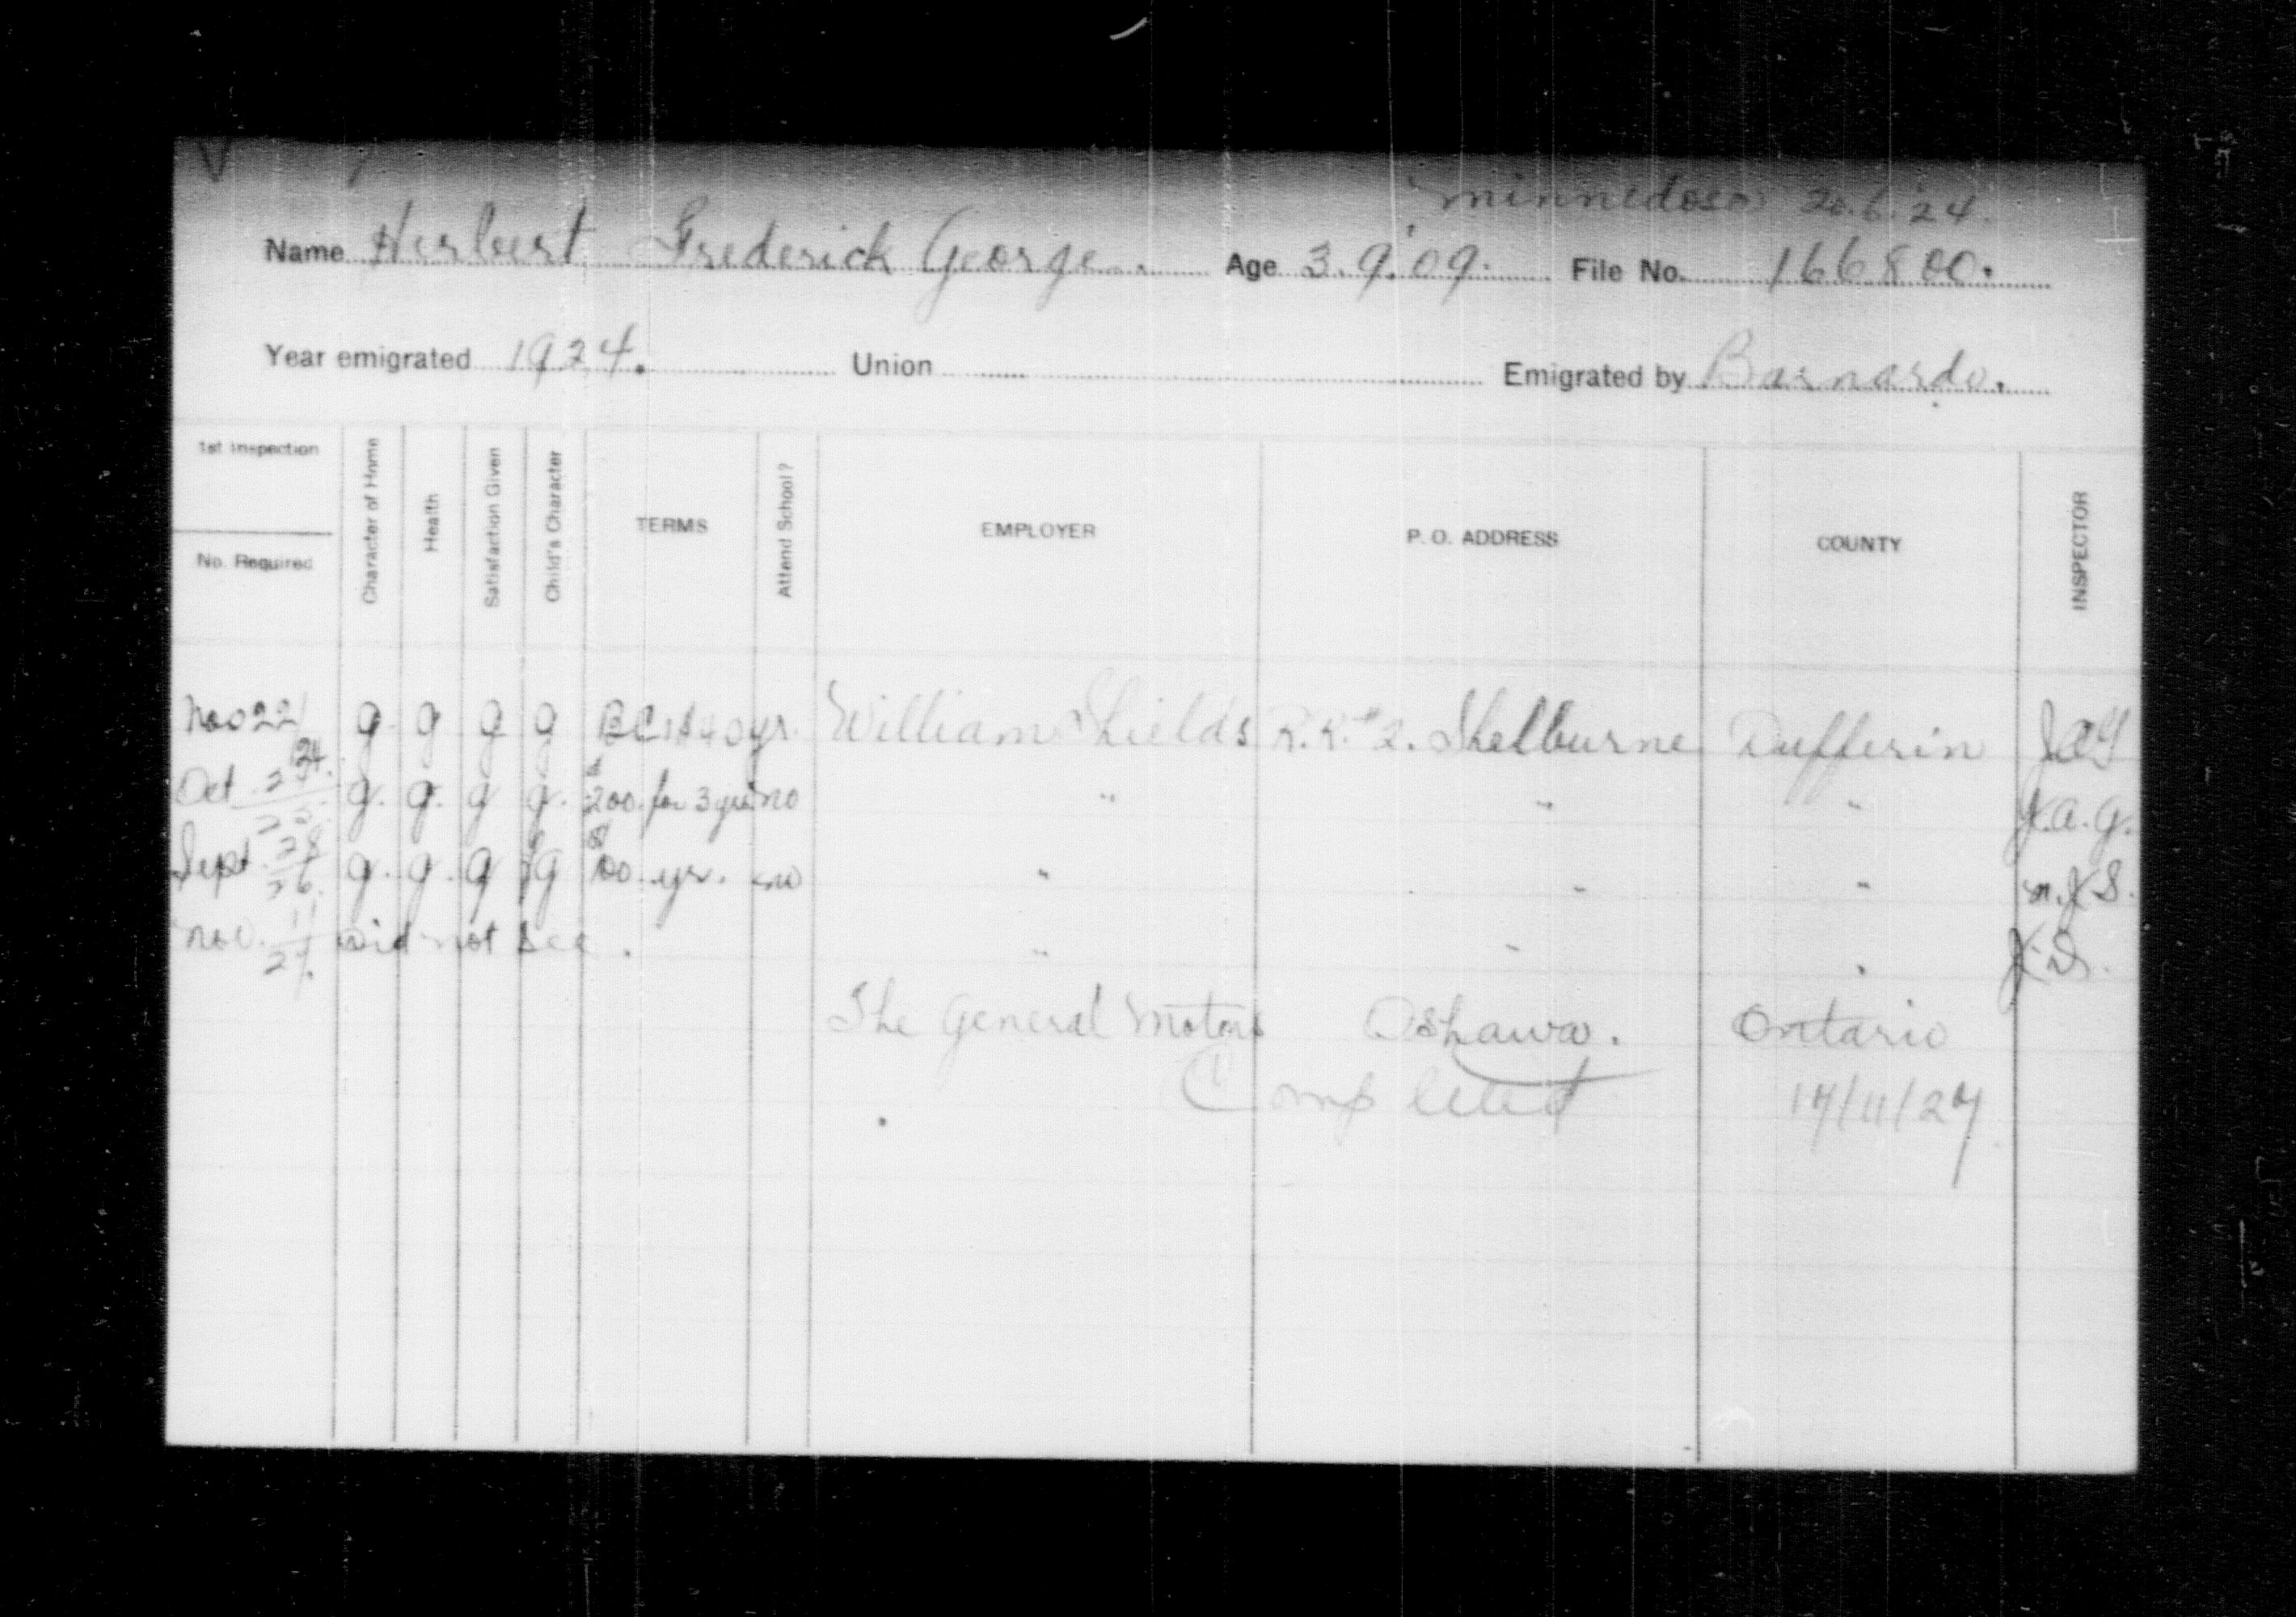 Minnedosa 20.6.24.
Name Herbert Frederick George. Age 3.9.09. File No. 166800.
Year emigrated 1924. Union Emigrated by Barnardo.
1st Inspection
No. Required
Character of Home
Health
Satisfaction Given
Child's Character
TERMS
Attend School?
EMPLOYER
P. O. ADDRESS
COUNTY
INSPECTOR
Nov 22/24. g. g g g BC 40 yr. William Shields R.R. #2. Shelburne Dufferin
Oct g. g. g g. $200. for 3 yrs no " " " J.a.g.
Sept. 28/26. g. g. g g $100 yr. no " " " n.J.S.
Nov. 11/27. Did not see. " " "
The General Motors Oshawa. Ontario
Completed 17/11/27